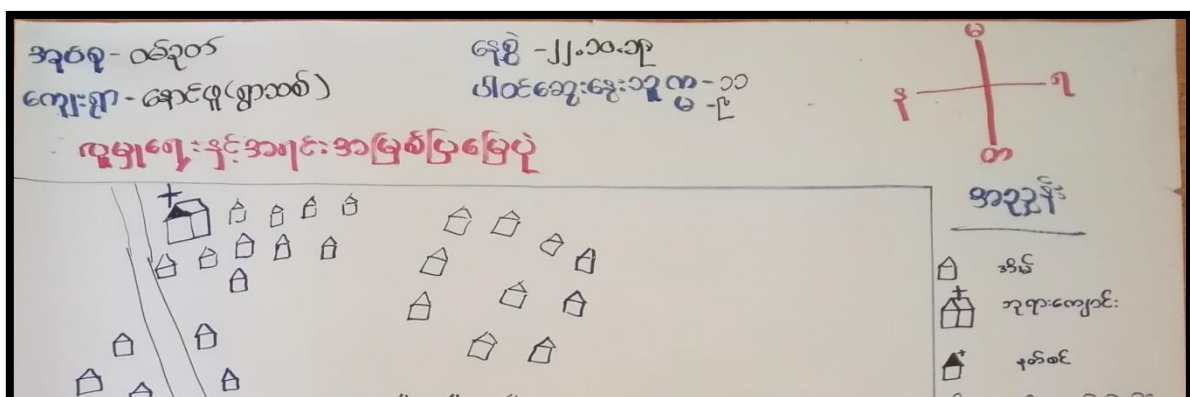 အုပ်စု - ဝမ်ဒုတ်
ကျေးရွာ - နောင်ဖူ (ရွာသစ်)
နေ့စွဲ - ၂၂.၁၀.၁၃
ပါဝင်ဆွေးနွေးသူ ကျ - ၁၁
မ - ၉
လူမှုရေးနှင့်အရင်းအမြစ်ပြမြေပုံ
မ
န
ရ
တ
အညွှန်း
အိမ်
ဘုရားကျောင်း
နတ်စင်